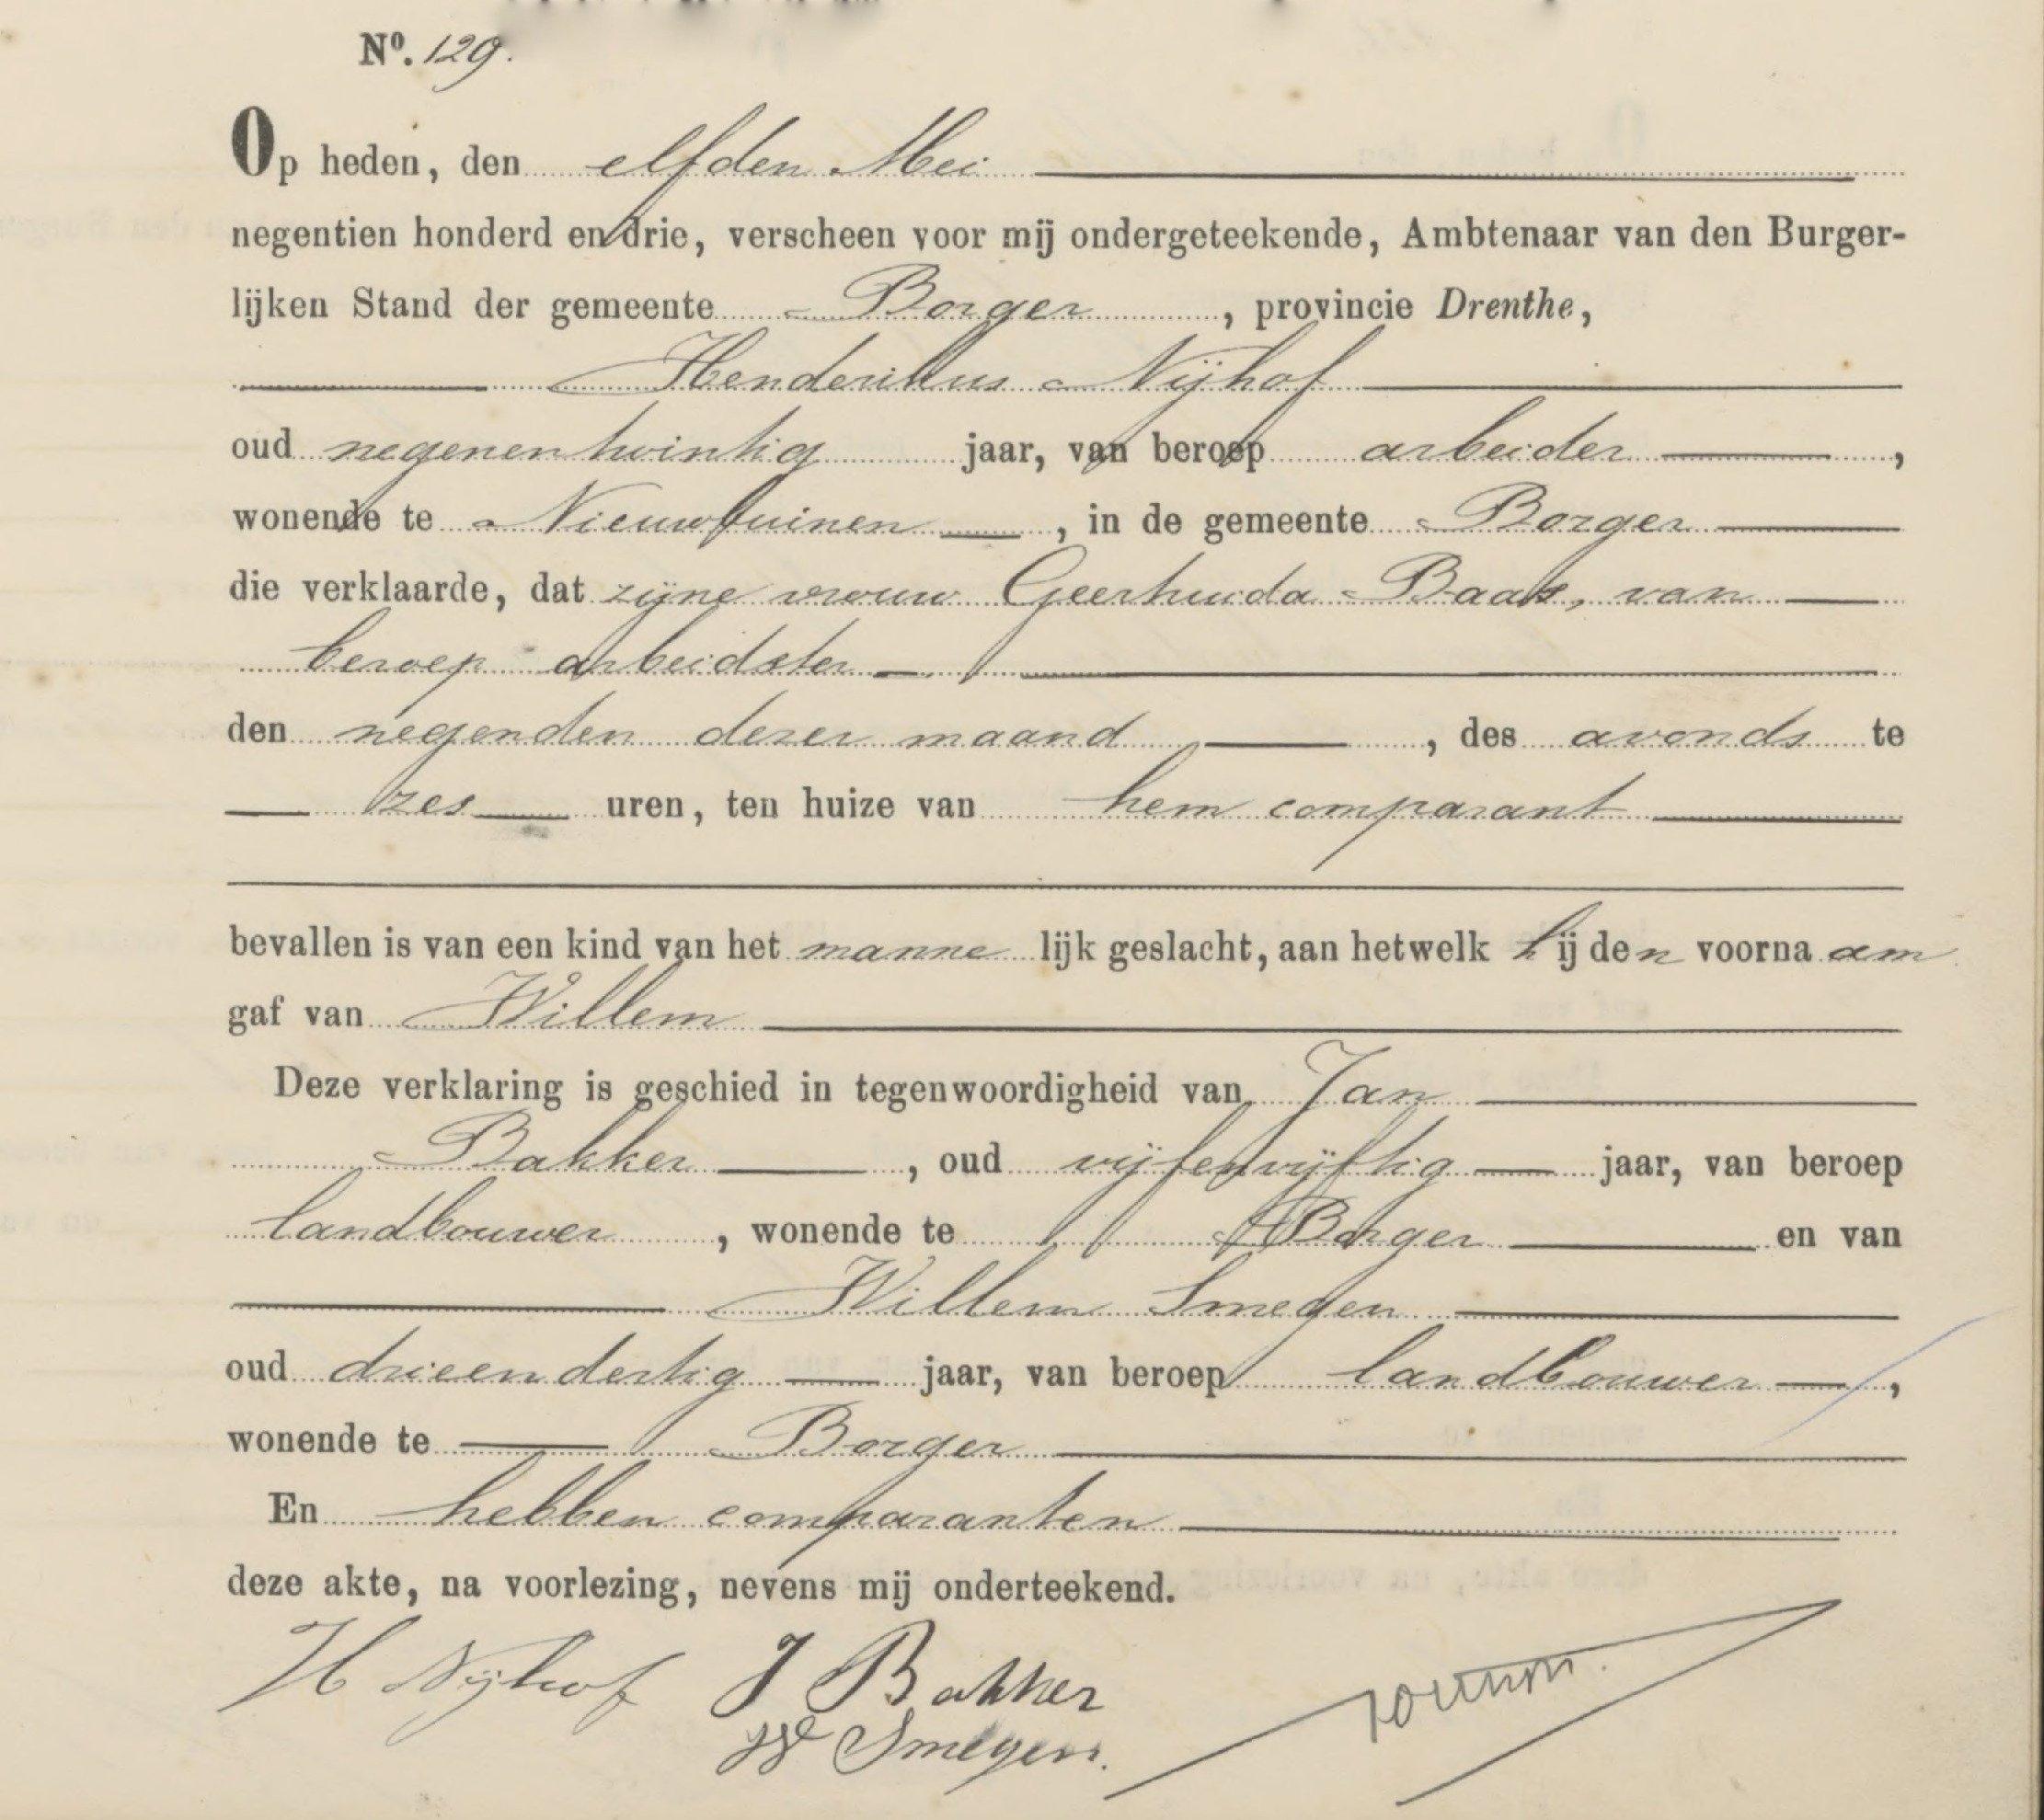 Nº. 129.
Op heden, den elfden Mei
negentien honderd en drie, verscheen voor mij ondergeteekende, Ambtenaar van den Burger-
lijken Stand der gemeente Borger, provincie Drenthe,
Henderikus Nijhof
oud negenentwintig jaar, van beroep arbeider,
wonende te Nieuwbuinen, in de gemeente Borger
die verklaarde, dat zijne vrouw Geerhuida Baas, van
beroep arbeidster
den negenden dezer maand, des avonds te
zes uren, ten huize van hem comparant
bevallen is van een kind van het manne lijk geslacht, aan hetwelk hij den voorna am
gaf van Willem
Deze verklaring is geschied in tegenwoordigheid van Jan
Bakker, oud vijfenvijftig jaar, van beroep
landbouwer, wonende te Borger en van
Willem Smegen
oud drieendertig jaar, van beroep landbouwer,
wonende te Borger
En hebben comparanten
deze akte, na voorlezing, nevens mij onderteekend.
H Nijhof J Bakker
W Smegen.